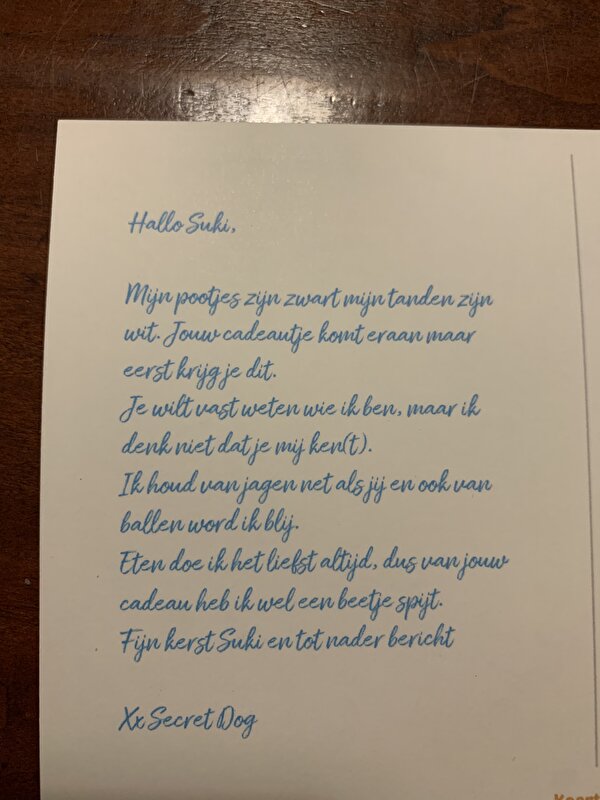 Hallo Suki,
Mijn pootjes zijn zwart mijn tanden zijn
wit. Jouw cadeautje komt eraan maar
eerst krijg je dit.
Je wilt vast weten wie ik ben, maar ik
denk niet dat je mij ken(t).
Ik houd van jagen net als jij en ook van
ballen word ik blij.
Eten doe ik het liefst altijd, dus van jouw
cadeau heb ik wel een beetje spijt.
Fijn kerst Suki en tot nader bericht
Xx Secret Dog